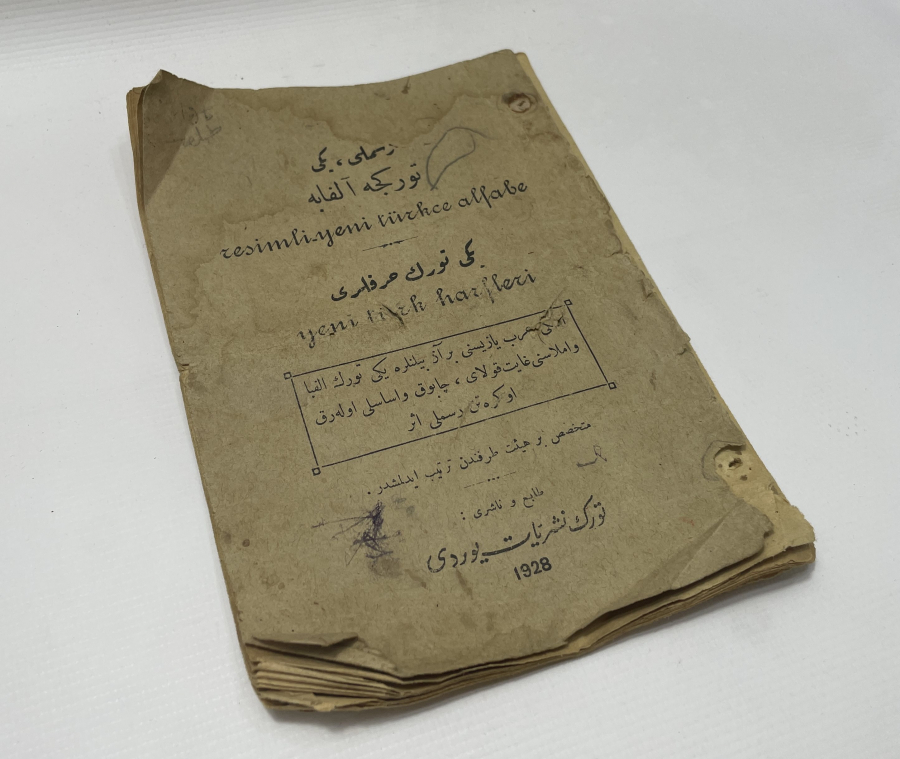 رسملی، یكی
توركجه آلفابه
resimli-yeni türkce alfabe
یكی تورك حرفلری
yeni türk harfleri
اسكی عرب یازیسنی بر آز بیلنلره یكی تورك الفبا
واملاسنی غایت قولای، چابوق واساسلی اوله‌رق
اوكره‌تن رسملی اثر
متخصص بر هیئت طرفندن ترتیب ایدلمشدر.
طابع و ناشری :
تورك نشریات یوردی
1928